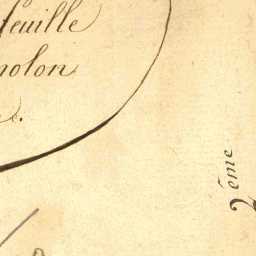 feuille
nolon
2ème